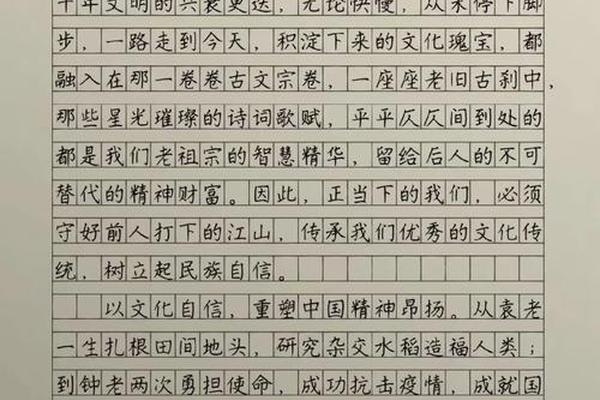 十年文明的兴衰更迭，无论快慢，从未停下脚
步，一路走到今天，积淀下来的文化瑰宝，都
融入在那一卷卷古文宗卷，一座座老旧古刹中，
那些星光璀璨的诗词歌赋，平平仄仄间到处的
都是我们老祖宗的智慧精华，留给后人的不可
替代的精神财富。因此，正当下的我们，必须
守好前人打下的江山，传承我们优秀的文化传
统，树立起民族自信。
以文化自信，重塑中国精神昂扬。从袁老
一生扎根田间地头，研究杂交水稻造福人类；
到钟老两次勇担使命，成功抗击疫情，成就国